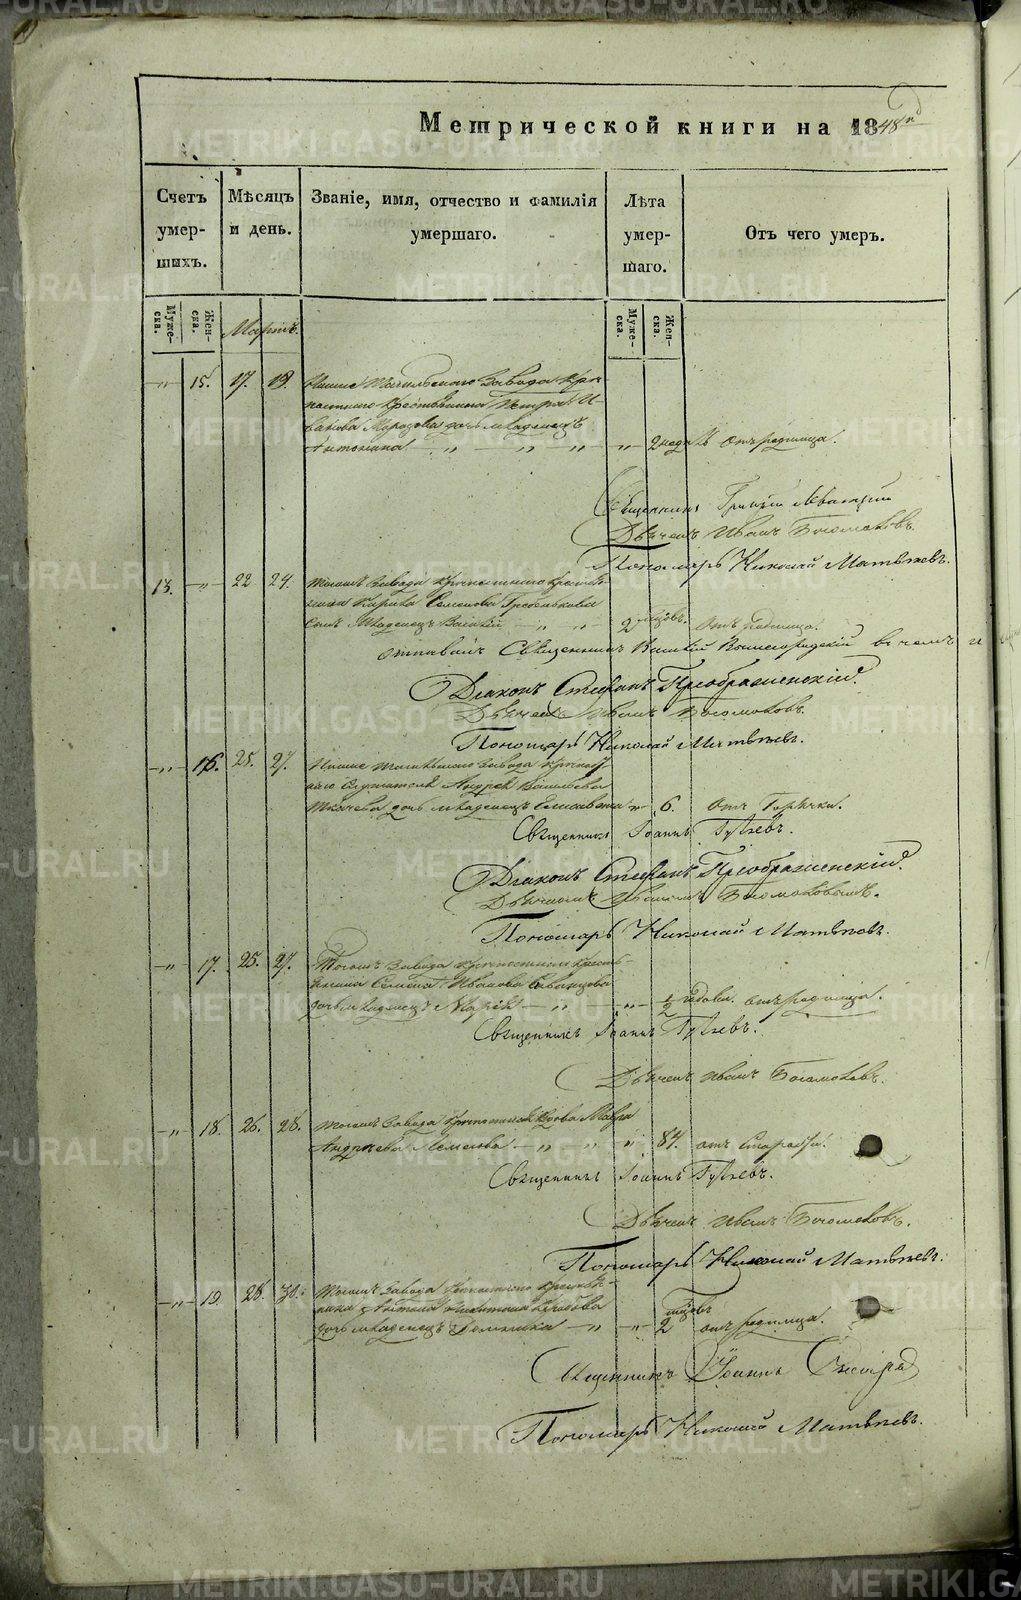 Метрической книги на 1848й
Счетъ умер-шихъ.
Мѣсяцъ и день.
Званіе, имя, отчество и фамилія умершаго.
Лѣта умер-шаго.
Отъ чего умеръ.
Муже-ска.
Жен-ска.
Мартъ.
Муже-ска.
Жен-ска.
15. 17. 19. Нижне Тагильскаго Завода Крѣ-
постнаго Крестьянина Петра И-
ванова Морозова дочь младенецъ
Антонина 2 недѣль Отъ родимца.
Священникъ Левицкій
Дьячекъ Иванъ Богомоловъ.
Пономарь Николай Матвѣевъ.
13. 22 24. Тогожъ Завода Крѣпостнаго Кресть-
янина Семенова
Сынъ Младенецъ Василій 2 мѣсяц. Отъ Родимца.
Отпѣвалъ Священникъ
Діаконъ Стефанъ Преображенскій.
Дьячекъ Иванъ Богомоловъ.
Пономарь Николай Матвѣевъ.
16. 25. 27. Нижне Тагильскаго Завода Крѣпост
наго Служителя Андрея Васильева
Ткачева дочь младенецъ Елисавета 6. Отъ Горячки.
Священникъ Іоаннъ
Діаконъ Стефанъ Преображенскій.
Дьячекъ Иванъ Богомоловъ.
Пономарь Николай Матвѣевъ.
17. 25. 27. Тогожъ Завода Крѣпостнаго Кресть-
янина Семена Иванова
дочь младенецъ Марія 1/2 годов. отъ родимца.
Священникъ Іоаннъ
Дьячекъ Иванъ Богомоловъ.
18. 26. 28. Тогожъ Завода Крѣпостная Вдова Мавра
Андреева 84. отъ Старости.
Священникъ Іоаннъ
Дьячекъ Иванъ Богомоловъ.
Пономарь Николай Матвѣевъ.
19. 28. 30. Тогожъ Завода Крѣпостнаго Крестья-
нина
дочь младенецъ Домника 2 мѣсяц. отъ родимца.
Священникъ Іоаннъ
Пономарь Николай Матвѣевъ.
METRIKI.GASO-URAL.RU